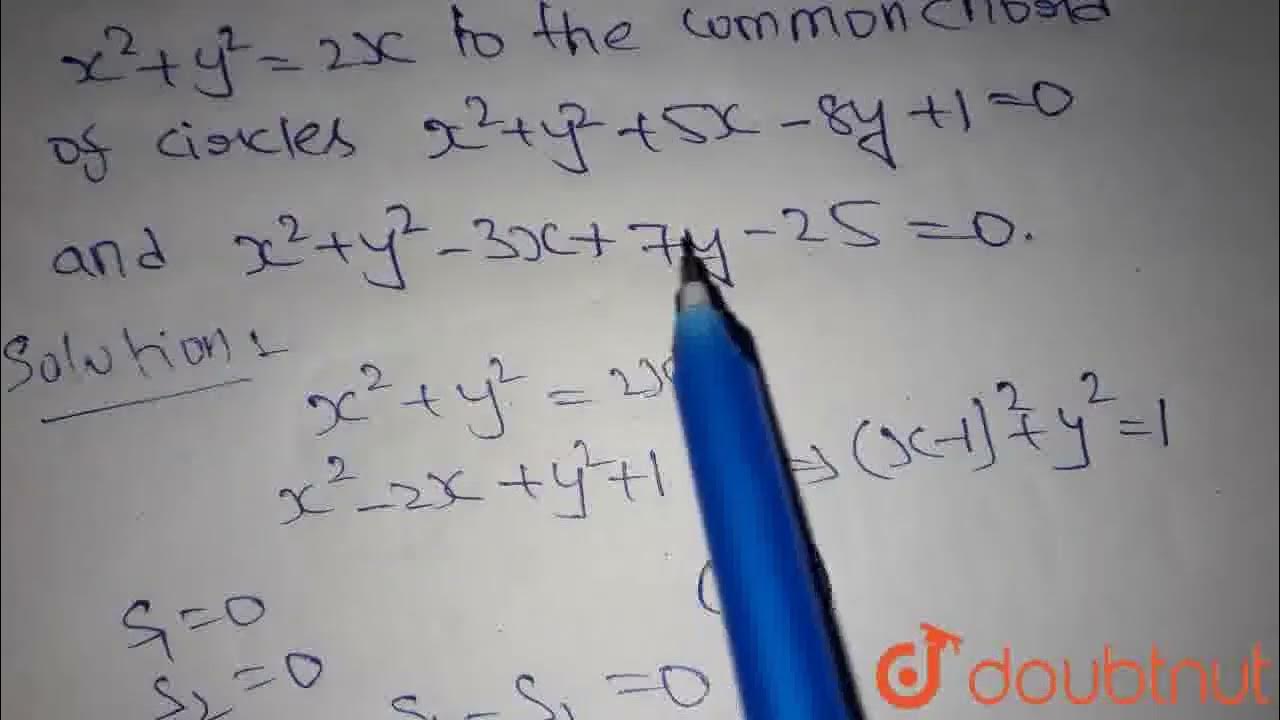 x² + y² = 2x to the common chord
of circles x² + y² + 5x - 8y + 1 = 0
and x² + y² - 3x + 7y - 25 = 0.
Solution :-
x² + y² = 2x
x² - 2x + y² + 1 ⇒ (x-1)² + y² = 1
(
S₁ = 0
S₂ = 0
S₁ - S₂ = 0
doubtnut